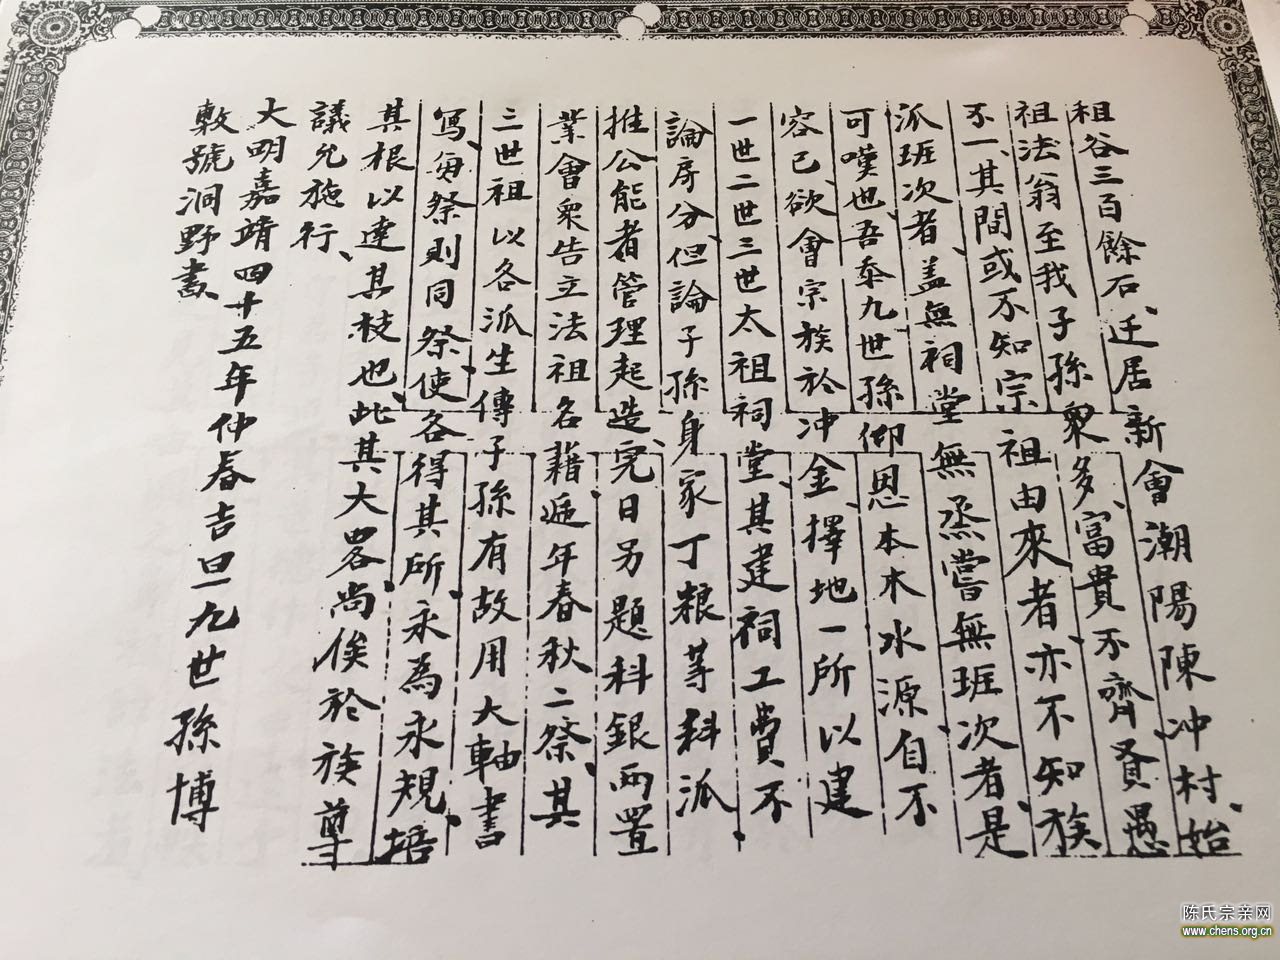 租谷三百餘石、迁居新會潮陽陳冲村、始
祖法翁至我子孫衆多、富貴不齊、賢愚
不一、其間或不知宗祖由來者、亦不知族
派班次者、盖無祠堂無烝嘗無班次者、是
可嘆也、吾忝九世孫仰恩本木水源自不
容已、欲會宗族於冲金、擇地一所以建
一世二世三世太祖祠堂、其建祠工費不
論房分、但論子孫身家丁粮等科派、
推公能者管理起造、完日另題科銀両置
業會衆告立法祖名籍、遞年春秋二祭、其
三世祖以各派生傳子孫有故用大軸書
写、每祭則同祭、使各得其所、永為永規、培
其根以達其枝也、此其大畧尚俟於族尊
議允施行、
大明嘉靖四十五年仲春吉旦九世孫博
敷號洞野書、
陈氏宗亲网
www.chens.org.cn